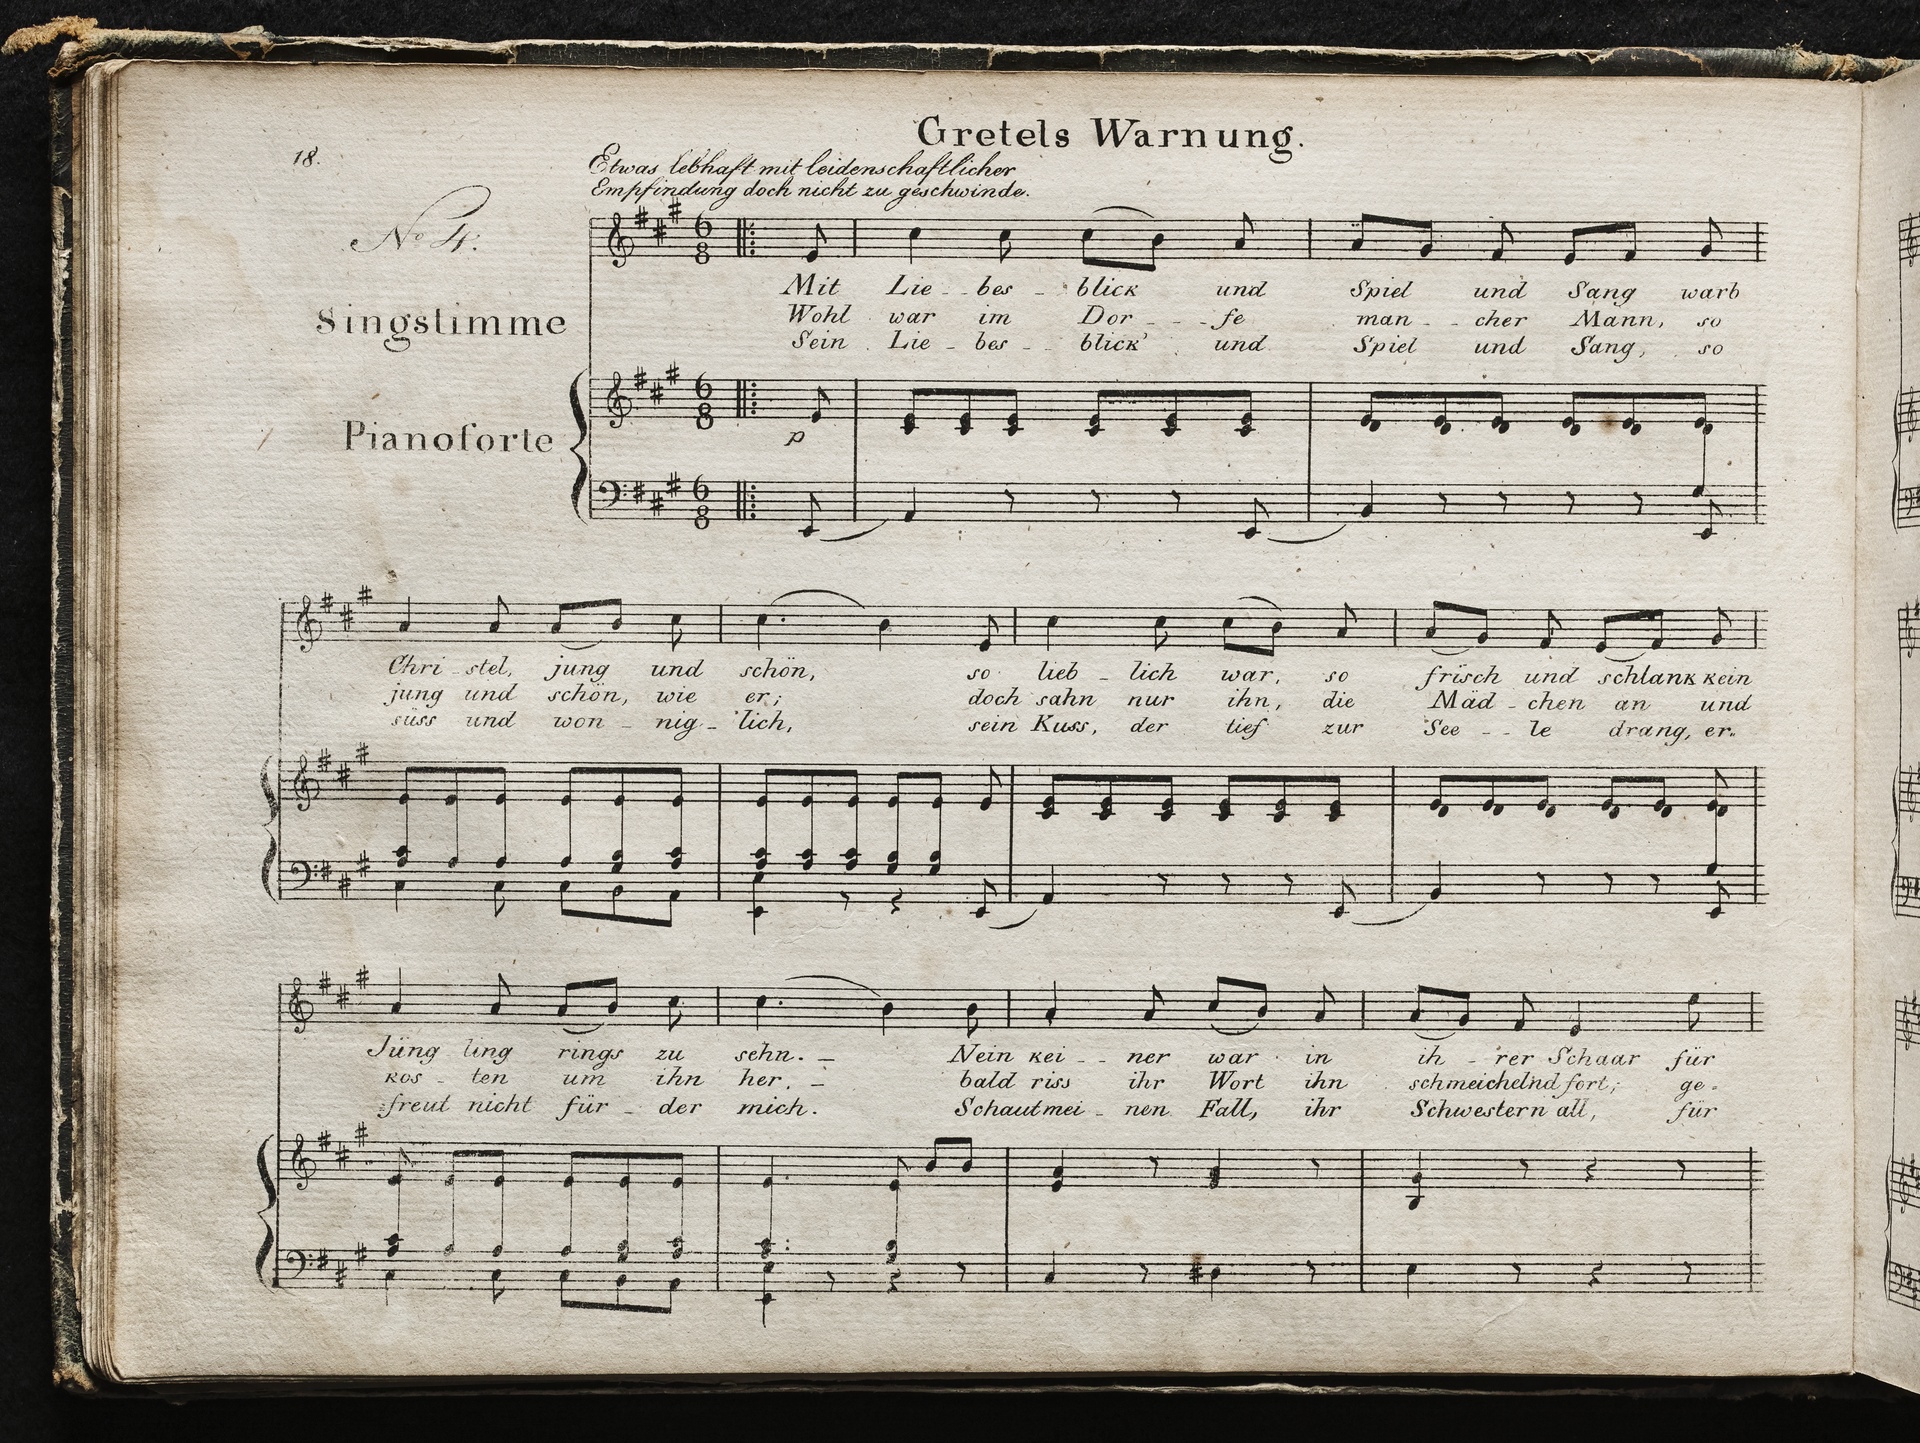 18.
Gretels Warnung.
Etwas lebhaft mit leidenschaftlicher
Empfindung doch nicht zu geschwinde.
No 4.
Singstimme
Mit Lie - bes - blick und Spiel und Sang warb
Wohl war im Dor - - fe man - - cher Mann, so
Sein Lie - bes - - blick und Spiel und Sang, so
Pianoforte
p
Chri - stel, jung und schön, so lieb - lich war, so frisch und schlank kein
jung und schön, wie er; doch sahn nur ihn, die Mäd - chen an und
süss und won - nig - lich, sein Kuss, der tief zur See - - le drang, er-
Jüng ling rings zu sehn. - Nein kei - - ner war in ih - rer Schaar für
kos - ten um ihn her. - bald riss ihr Wort ihn schmeichelnd fort; ge-
freut nicht für - der mich. Schaut mei - nen Fall, ihr Schwestern all, für